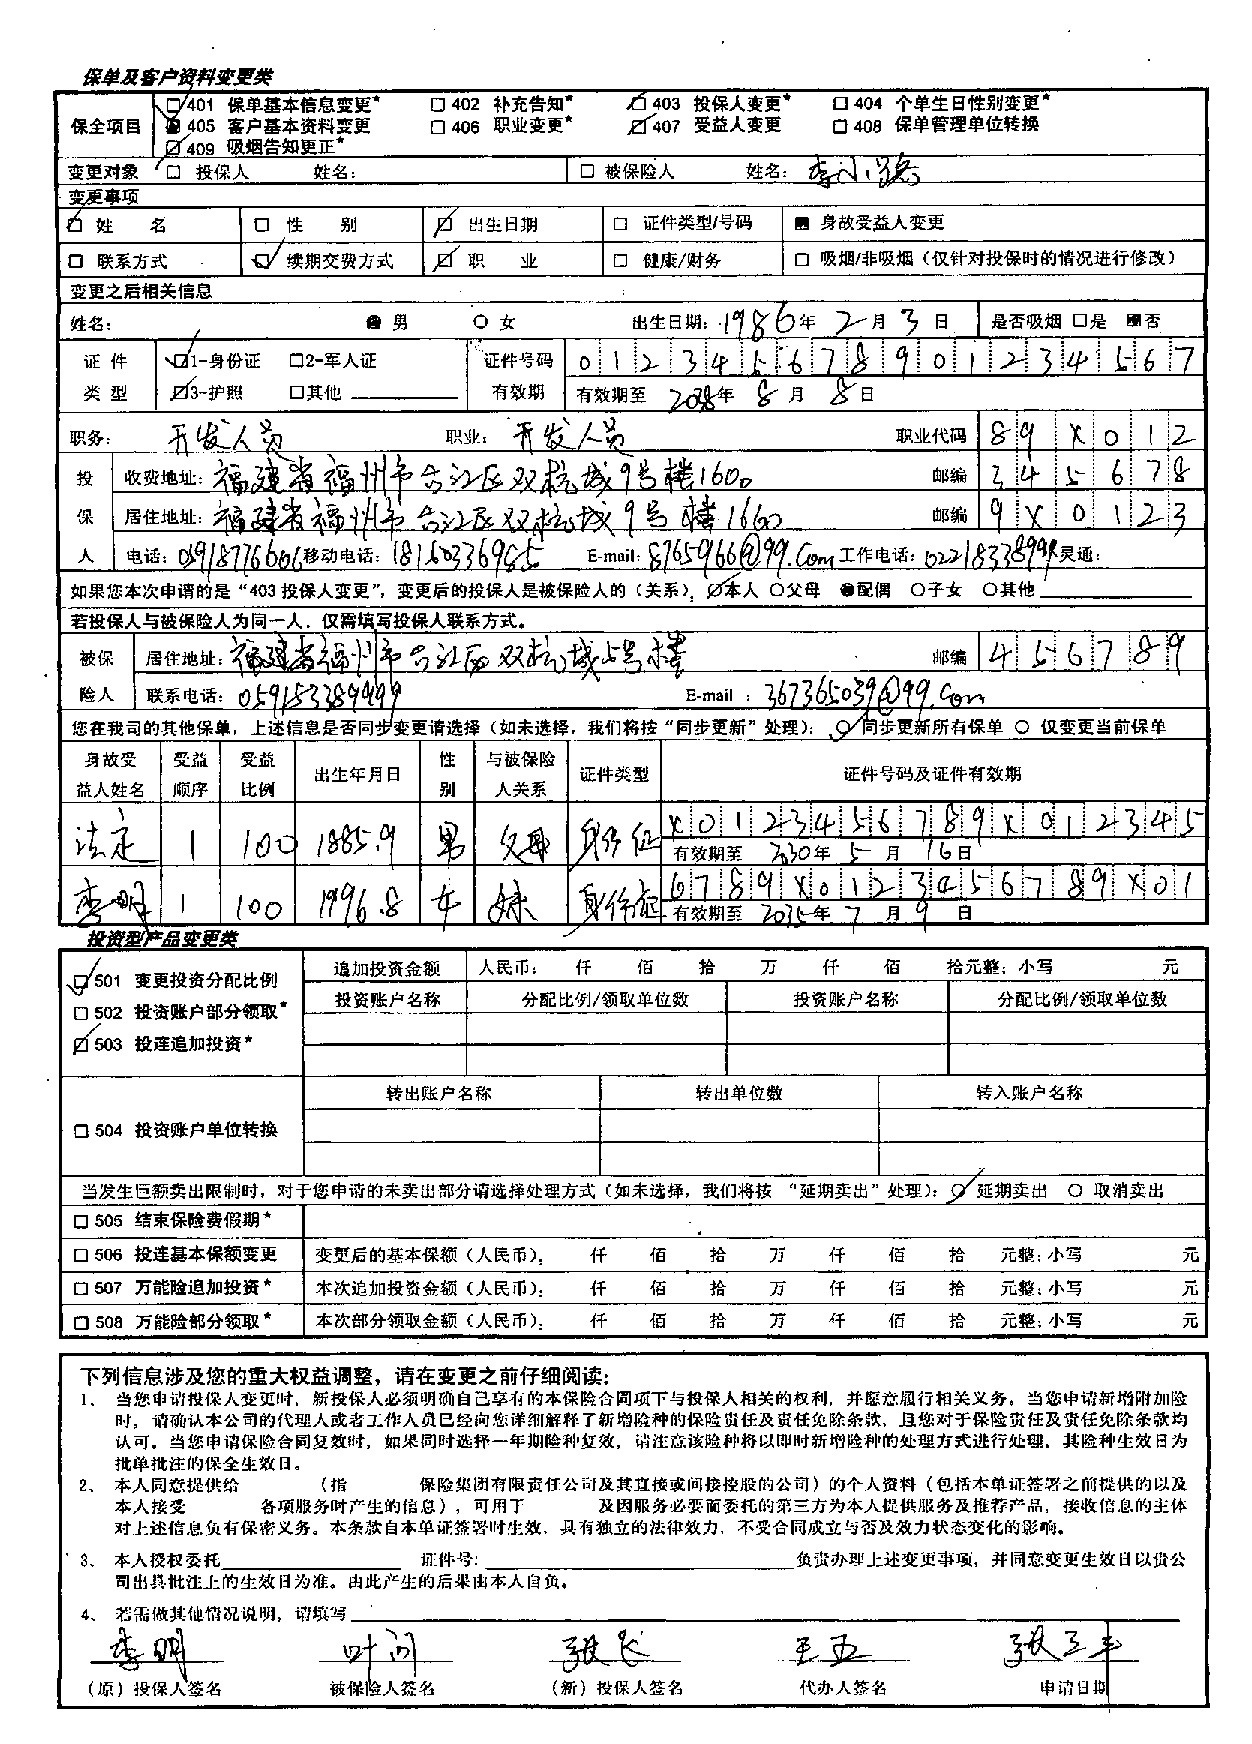 保单及客户资料变更类
保全项目 □401 保单基本信息变更* □402 补充告知* ☑403 投保人变更* □404 个单生日性别变更*
☑405 客户基本资料变更 □406 职业变更* ☑407 受益人变更 □408 保单管理单位转换
☑409 吸烟告知更正*
变更对象 □ 投保人 姓名: □ 被保险人 姓名:
变更事项
☑ 姓 名 □ 性 别 ☑ 出生日期 □ 证件类型/号码 ■ 身故受益人变更
□ 联系方式 ☑ 续期交费方式 ☑ 职 业 □ 健康/财务 □ 吸烟/非吸烟(仅针对投保时的情况进行修改)
变更之后相关信息
姓名: ● 男 ○ 女 出生日期: 1986年 2月 3日 是否吸烟 □是 ■否
证件 ☑1-身份证 □2-军人证 证件号码 012345678901234567
类型 ☑3-护照 □其他 有效期 有效期至 2038年 8月 8日
职务: 开发人员 职业: 开发人员 职业代码 89X012
投 收费地址: 福建省福州市台江区双杭城9号楼1600 邮编 345678
保 居住地址: 福建省福州市台江区双杭城9号楼1660 邮编 9X0123
人 电话: 05918776606 移动电话: 18160336985 E-mail: 8765966@99.Com 工作电话: 灵通:
如果您本次申请的是“403投保人变更”,变更后的投保人是被保险人的(关系), ☑本人 ○父母 ●配偶 ○子女 ○其他
若投保人与被保险人为同一人,仅需填写投保人联系方式。
被保 居住地址: 福建省福州市台江区双杭城5号楼 邮编 456789
险人 联系电话: 059153389999 E-mail : 367365039@99.Com
您在我司的其他保单,上述信息是否同步变更请选择(如未选择,我们将按“同步更新”处理): ☑ 同步更新所有保单 ○ 仅变更当前保单
身故受益人姓名 受益顺序 受益比例 出生年月日 性别 与被保险人关系 证件类型 证件号码及证件有效期
法定 1 100 1885.9 男 父母 身份证 X0123456789X012345
有效期至 2030年 5月 16日
李明 1 100 1996.8 女 妹 身份证 6789X0123456789X01
有效期至 2035年 7月 9日
投资型产品变更类
☑501 变更投资分配比例 追加投资金额 人民币: 仟 佰 拾 万 仟 佰 拾元整: 小写 元
□502 投资账户部分领取* 投资账户名称 分配比例/领取单位数 投资账户名称 分配比例/领取单位数
☑503 投连追加投资*
转出账户名称 转出单位数 转入账户名称
□504 投资账户单位转换
当发生巨额卖出限制时,对于您申请的未卖出部分请选择处理方式(如未选择,我们将按 “延期卖出”处理): ☑ 延期卖出 ○ 取消卖出
□505 结束保险费假期*
□506 投连基本保额变更 变更后的基本保额(人民币): 仟 佰 拾 万 仟 佰 拾 元整: 小写 元
□507 万能险追加投资* 本次追加投资金额(人民币): 仟 佰 拾 万 仟 佰 拾 元整: 小写 元
□508 万能险部分领取* 本次部分领取金额(人民币): 仟 佰 拾 万 仟 佰 拾 元整: 小写 元
下列信息涉及您的重大权益调整,请在变更之前仔细阅读:
1、当您申请投保人变更时,新投保人必须明确自己享有的本保险合同项下与投保人相关的权利,并愿意履行相关义务。当您申请新增附加险
时,请确认本公司的代理人或者工作人员已经向您详细解释了新增险种的保险责任及责任免除条款,且您对于保险责任及责任免除条款均
认可。当您申请保险合同复效时,如果同时选择一年期险种复效,请注意该险种将以即时新增险种的处理方式进行处理,其险种生效日为
批单批注的保全生效日。
2、本人同意提供给 (指 保险集团有限责任公司及其直接或间接控股的公司)的个人资料(包括本单证签署之前提供的以及
本人接受 各项服务时产生的信息),可用于 及因服务必要而委托的第三方为本人提供服务及推荐产品,接收信息的主体
对上述信息负有保密义务。本条款自本单证签署时生效,具有独立的法律效力,不受合同成立与否及效力状态变化的影响。
3、本人授权委托 证件号: 负责办理上述变更事项,并同意变更生效日以贵公
司出具批注上的生效日为准。由此产生的后果由本人自负。
4、若需做其他情况说明,请填写
李明 叶问 张飞 王五 张三丰
(原)投保人签名 被保险人签名 (新)投保人签名 代办人签名 申请日期